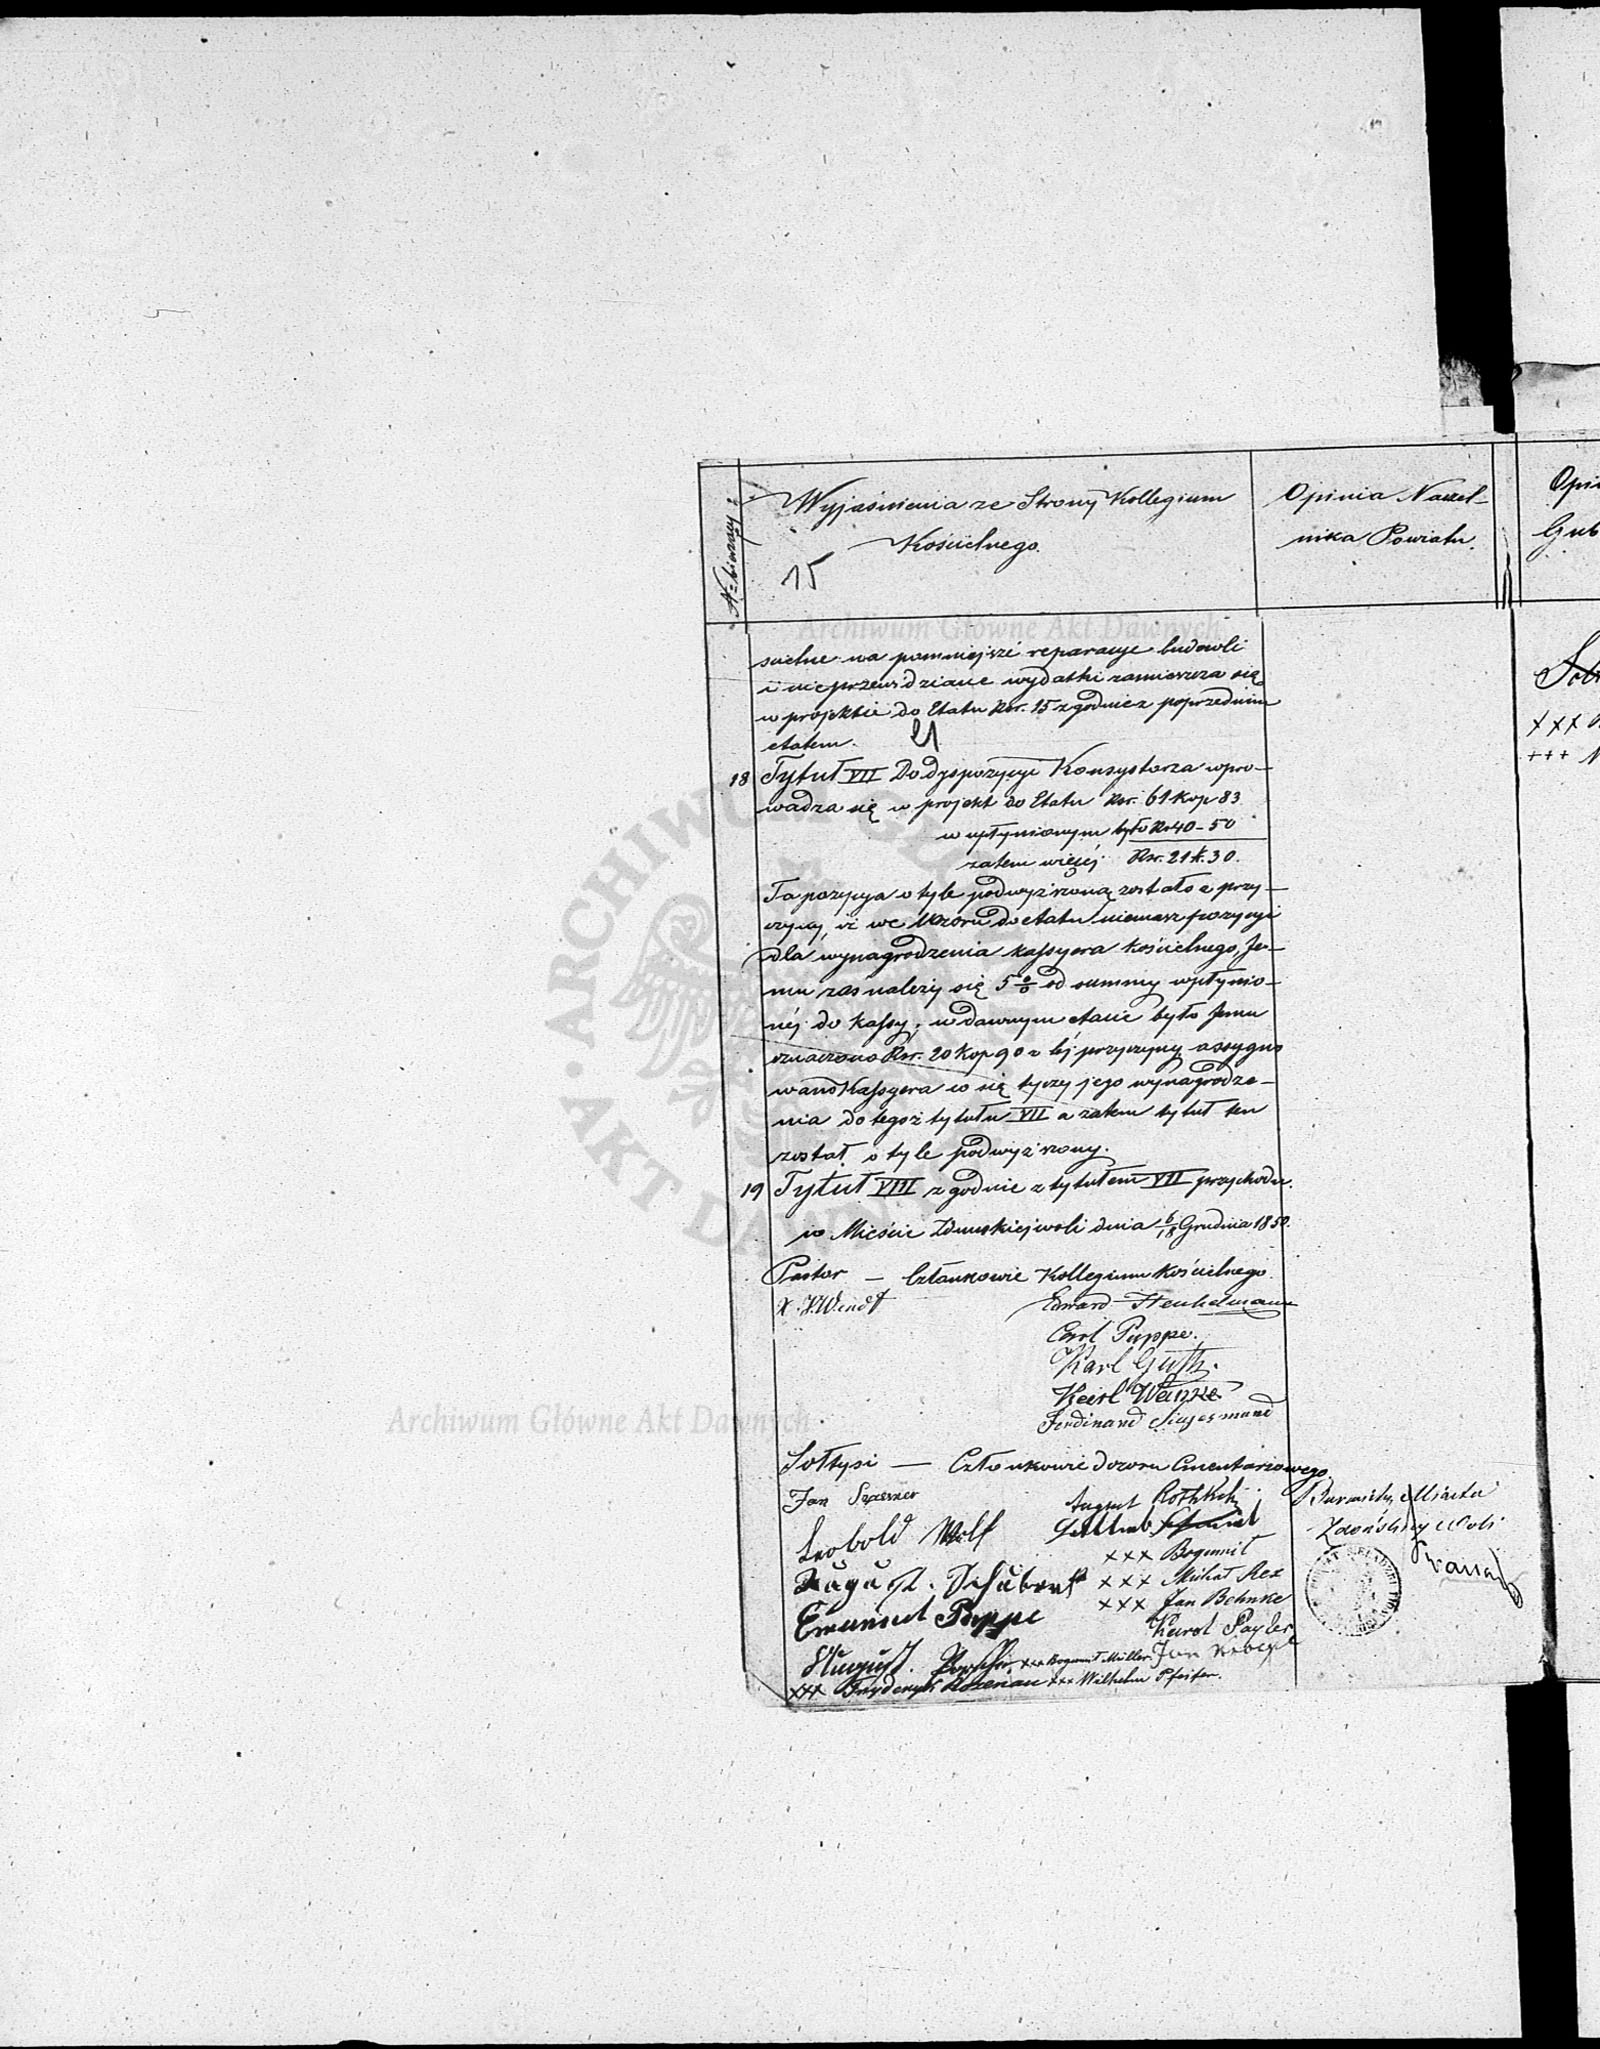 N: bieżący:
Wyjaśnienia ze Strony Kollegium
Kościelnego.
15
Opinia Naczel-
nika Powiatu.
Opi
Gub
Archiwum Główne Akt Dawnych
suelne na pomniejsze reparacye budowli
i nieprzewidziane wydatki zamieszcza się
w projekcie do Etatu Rsr. 15 zgodnie z poprzednim
etatem. 21
18 Tytuł VII Do dyspozycyi Konsystorza wpro-
wadza się w projekt do Etatu Rsr. 61 Kop 83
w upłynionym było Rs 40 - 50
zatem więcej Rsr. 21 k. 30.
Ta pozycya o tyle podwyższoną została z przy-
czyny, iż we Wzoru do etatu niemasz pozycyi
dla wynagrodzenia kassyera kościelnego, Je-
mu zas należy się 5 % od summy wpłynio-
néj do kassy; w dawnym etacie było Jemu
oznaczono Rsr. 20 Kop 90 z téj przyczyny assygno
wano Kassyera co się tyczy jego wynagrodze-
nia do tegoż tytułu VII a zatem tytuł ten
został o tyle podwyższony.
19 Tytuł VIII zgodnie z tytułem VII przychodu.
w Mieście Zduńskiejwoli dnia 6/18 Grudnia 1850.
Pastor — Członkowie Kollegium Kościelnego
X. H. Wendt Edward Henkelmann
Carl Pappe.
Karl Guth.
Karl Wanke
Ferdinand
Archiwum Główne Akt Dawnych
Sołtysi — Członkowie dozoru Cmentarzowego
Jan August
Leobold Wolf Gottlieb
xxx Bogumił
August. Schubert xxx Michał Rex
xxx Jan Behnke
Emanuel Pappe Karol Payler
August. xxx Bogumił Müller Jan
xxx Fryderyk Rosenau xxx Wilhelm Pfeifer.
Burmistrz Miasta
Zduńskiej Woli
xxx
+++
ARCHIWUM GŁÓWNE AKT DAWNYCH